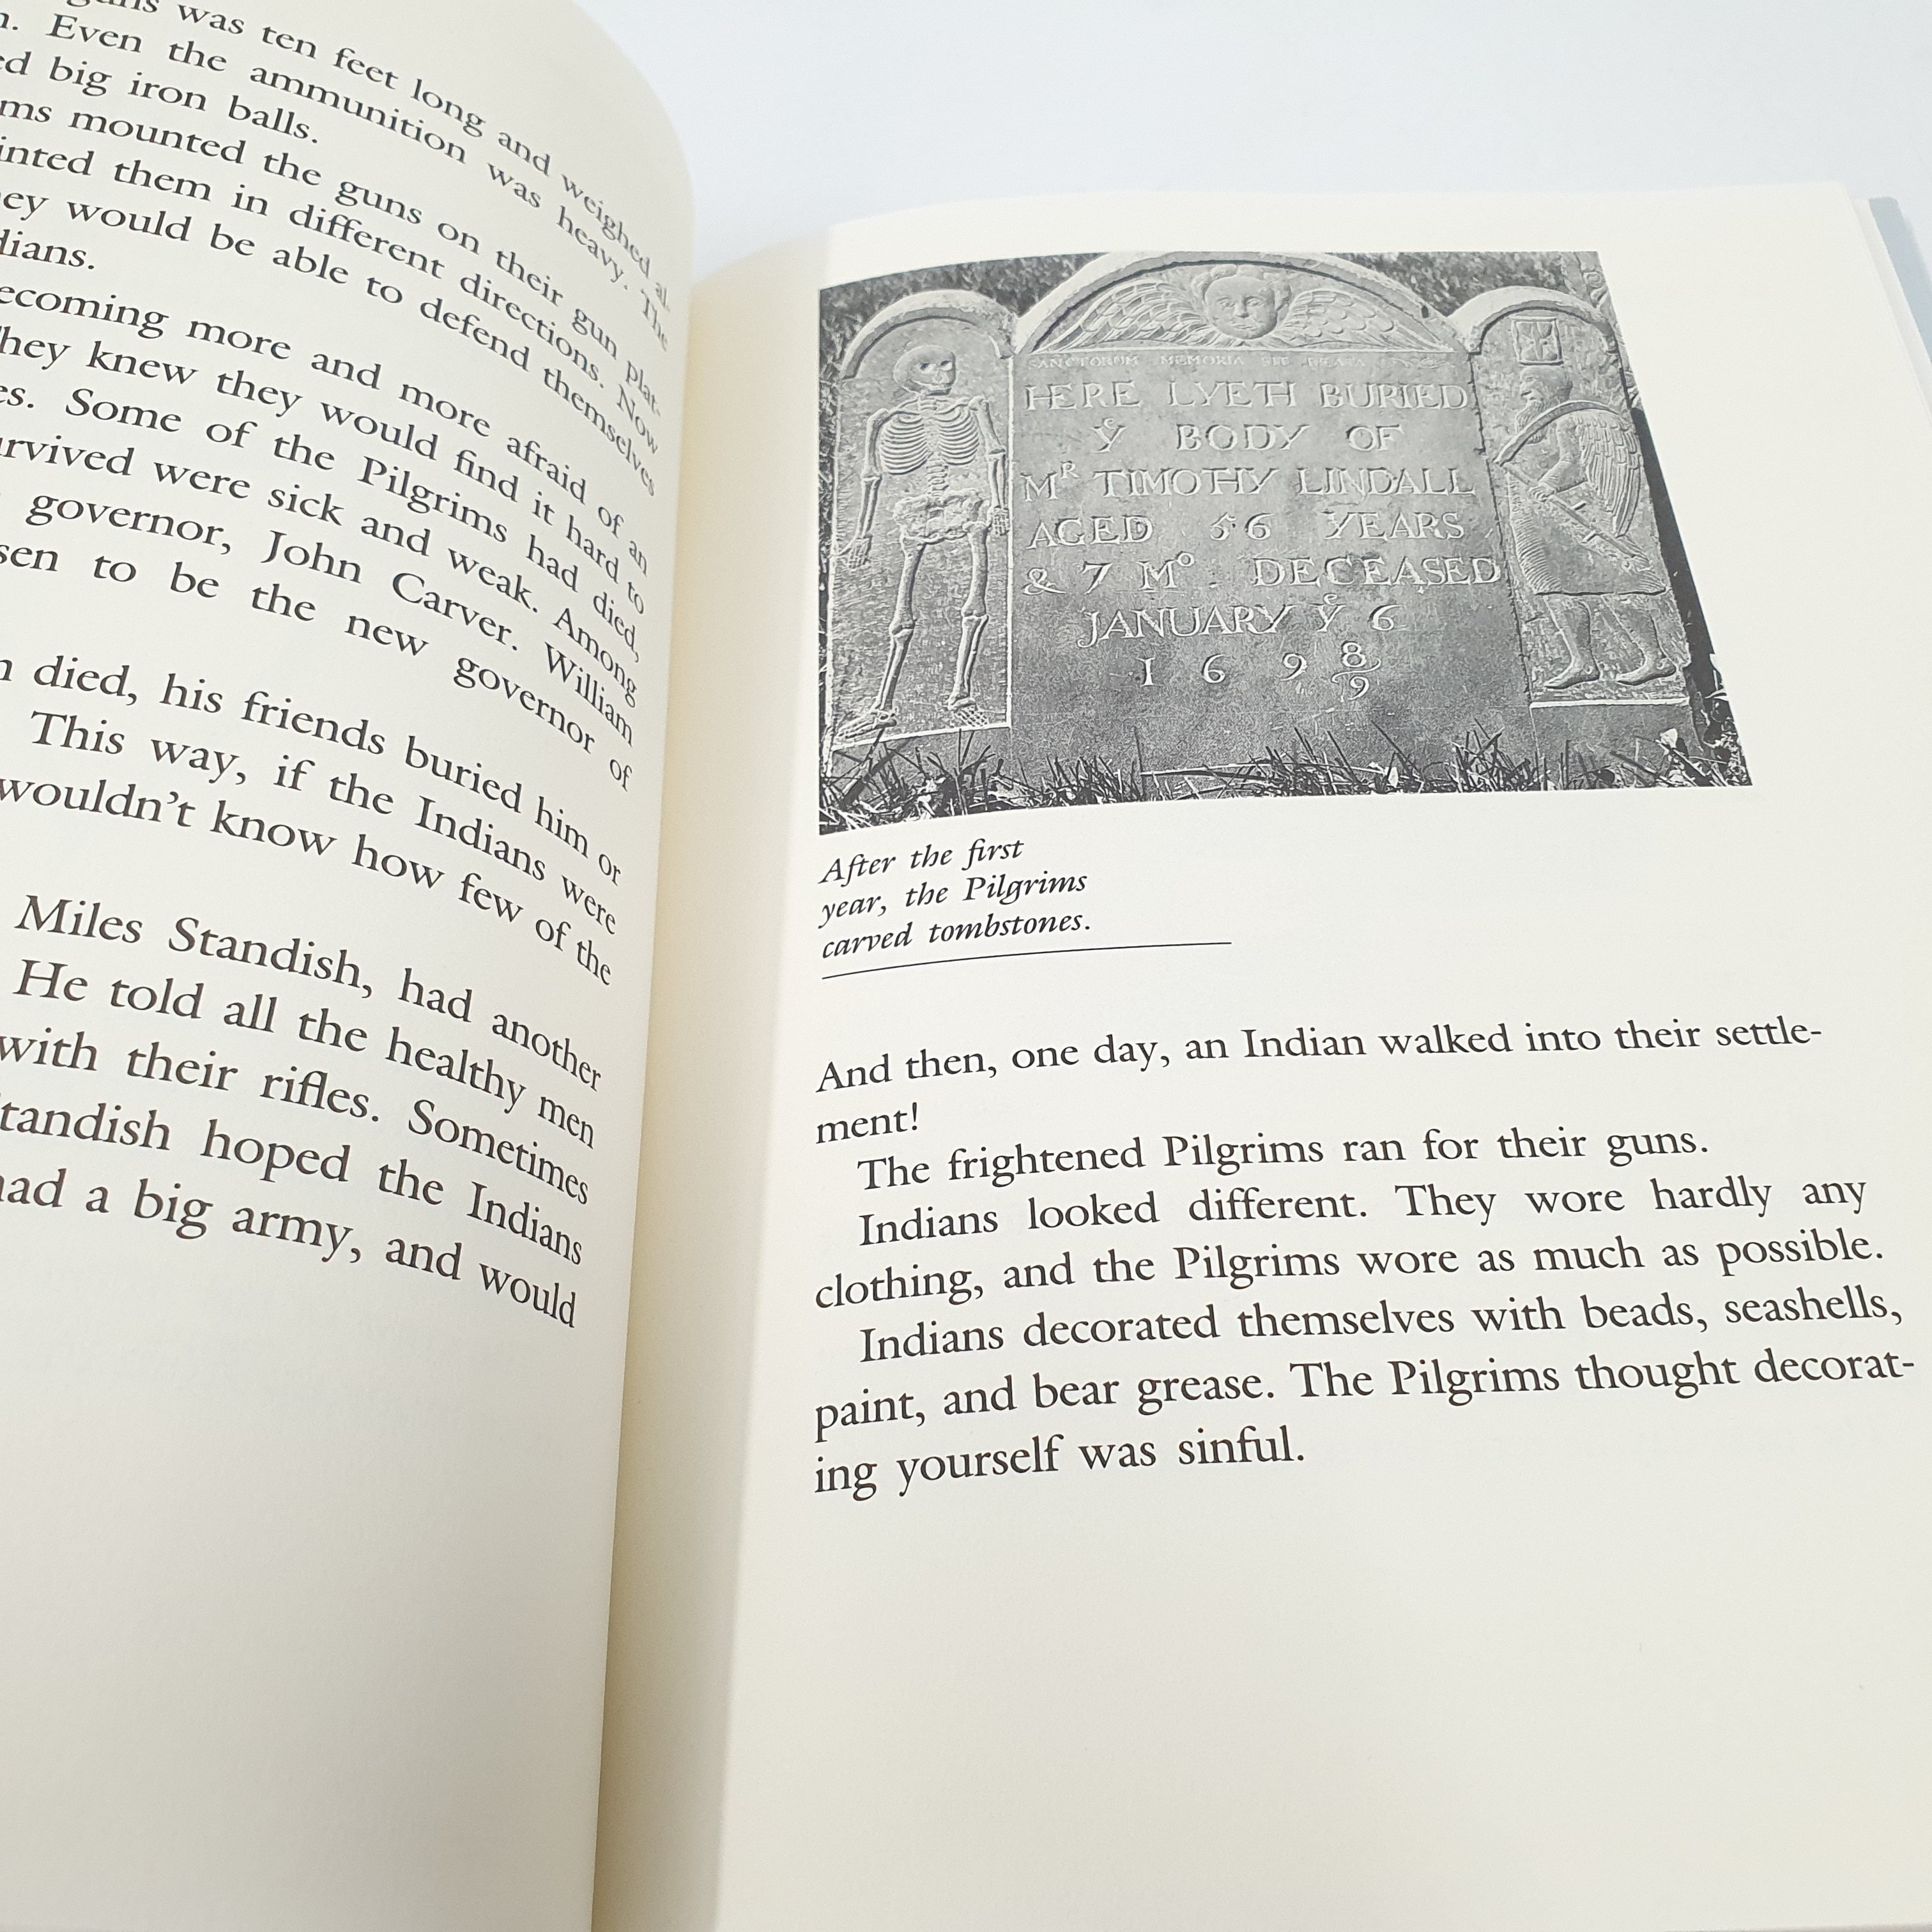 was ten feet long and weighed al-
Even the ammunition was heavy. The
big iron balls.
mounted the guns on their gun plat-
them in different directions. Now
would be able to defend themselves
more and more afraid of an
knew they would find it hard to
Some of the Pilgrims had died,
were sick and weak. Among
governor, John Carver. William
to be the new governor of
died, his friends buried him or
This way, if the Indians were
wouldn't know how few of the
Miles Standish, had another
He told all the healthy men
with their rifles. Sometimes
Standish hoped the Indians
had a big army, and would
SANCTORUM MEMORIA SIT BEATA
HERE LYETH BURIED
Yᵉ BODY OF
Mᴿ TIMOTHY LINDALL
AGED 56 YEARS
& 7 Mᵒ. DECEASED
JANUARY Yᵉ 6
1 6 9 8/9
After the first
year, the Pilgrims
carved tombstones.
And then, one day, an Indian walked into their settle-
ment!
The frightened Pilgrims ran for their guns.
Indians looked different. They wore hardly any
clothing, and the Pilgrims wore as much as possible.
Indians decorated themselves with beads, seashells,
paint, and bear grease. The Pilgrims thought decorat-
ing yourself was sinful.